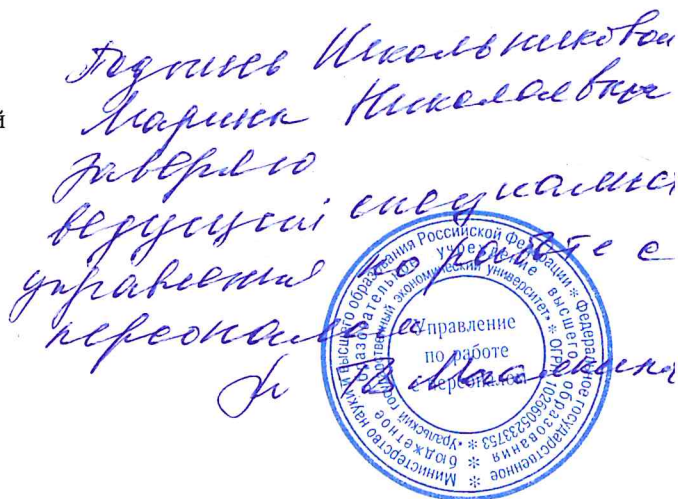 Подпись Школьниковой
й
Марины Николаевны
заверяю
ведущий специалист
управления по работе с
персоналом
Министерство науки и высшего образования Российской Федерации * Федеральное государственное
бюджетное образовательное учреждение высшего образования *
«Уральский государственный экономический университет» * ОГРН 1026605233753 *
Управление
по работе
с персоналом